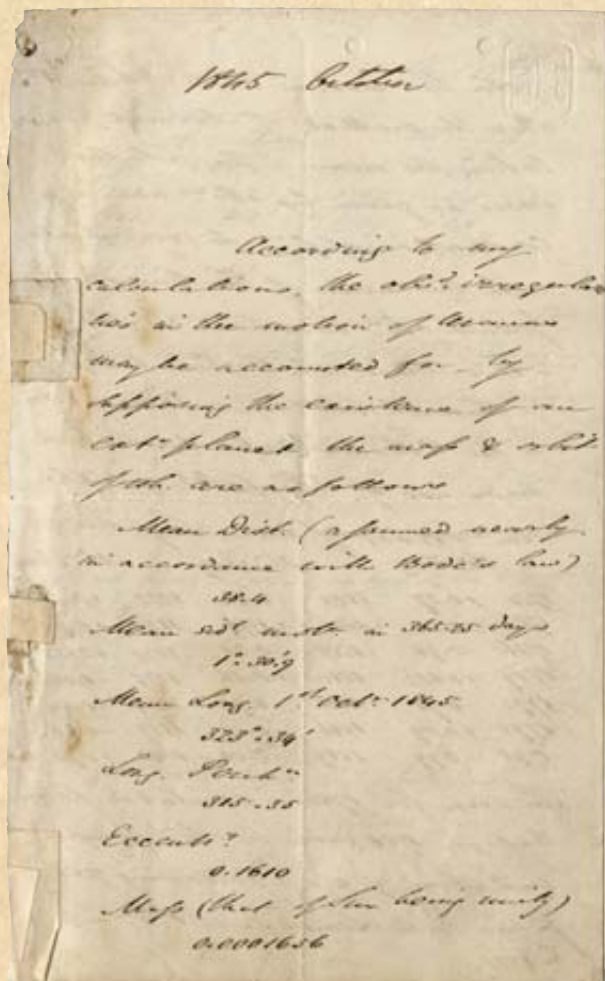 1845 October
According to my
calculations, the obsd. irregulari-
ties in the motion of Uranus
may be accounted for, by
supposing the existence of an
extr. planet, the mass & orbit
of wh. are as follows
Mean Dist. (assumed nearly
in accordance with Bode's law)
38.4
Mean sidl. motn. in 365.25 days
1°.30'.9
Mean Long. 1st Octr. 1845
323°.34'
Long. Perihn.
315.55
Eccenty.
0.1610
Mass (that of Sun being unity)
0.0001656